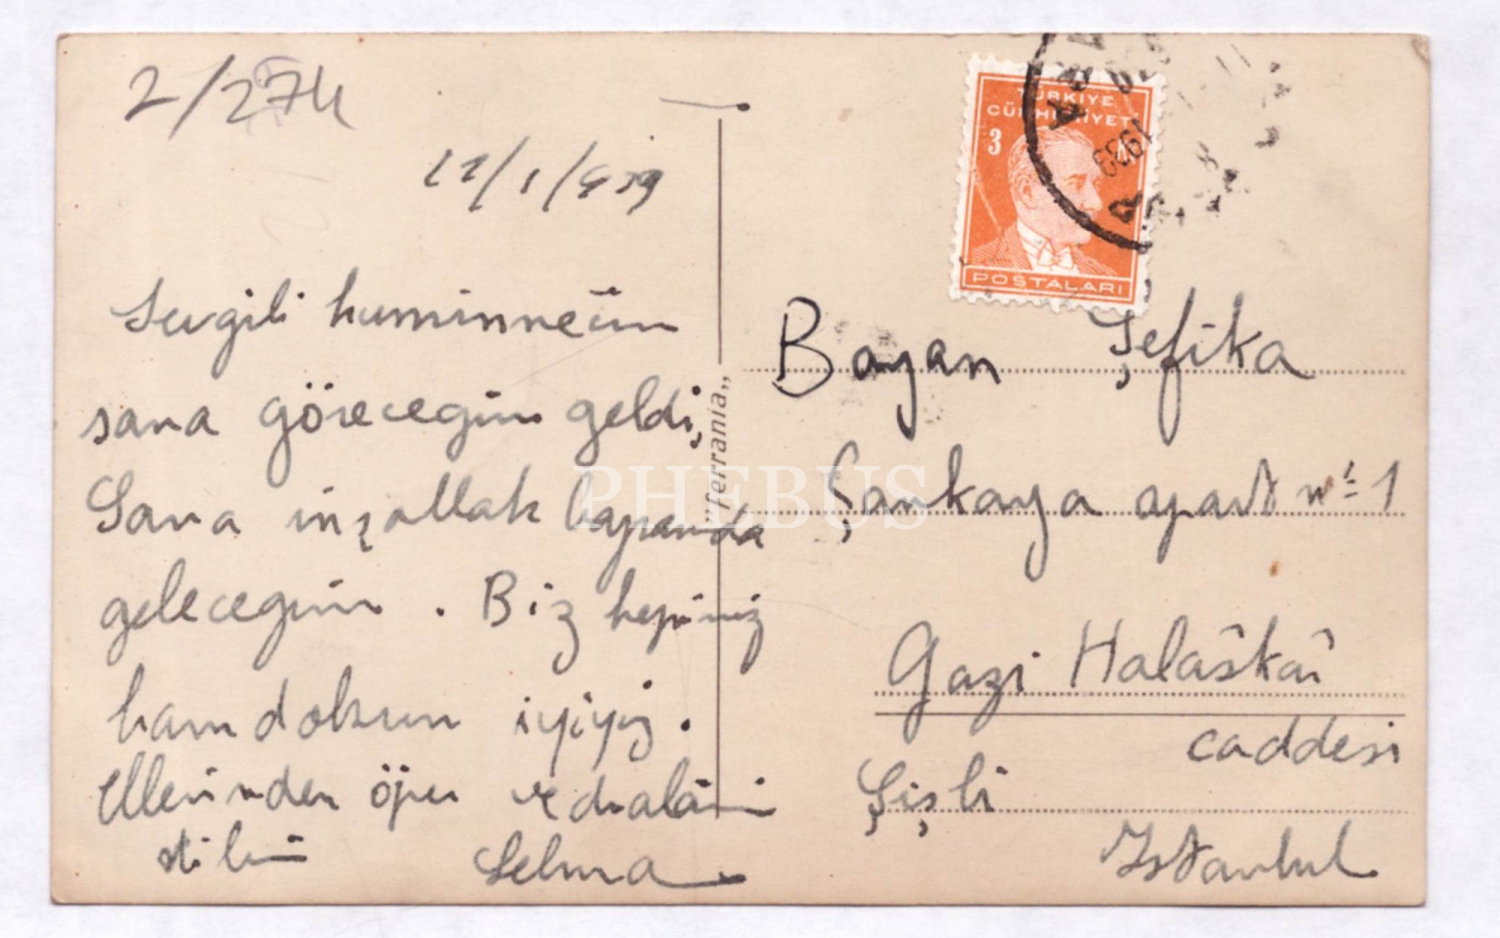 2/274
12/1/939
Sevgili huminneciim
sana göreceğim geldi,
Sana inşallah bayramda
geleceğim. Biz hepimiz
hamdolsun iyiyiz.
Ellerinden öper
Selma
"Ferrania"
TÜRKİYE
CÜMHURİYETİ
3
POSTALARI
1939
Bayan Şefika
Şankaya apart nº 1
Gazi Halâskâr
caddesi
Şişli
Istanbul
PHEBUS